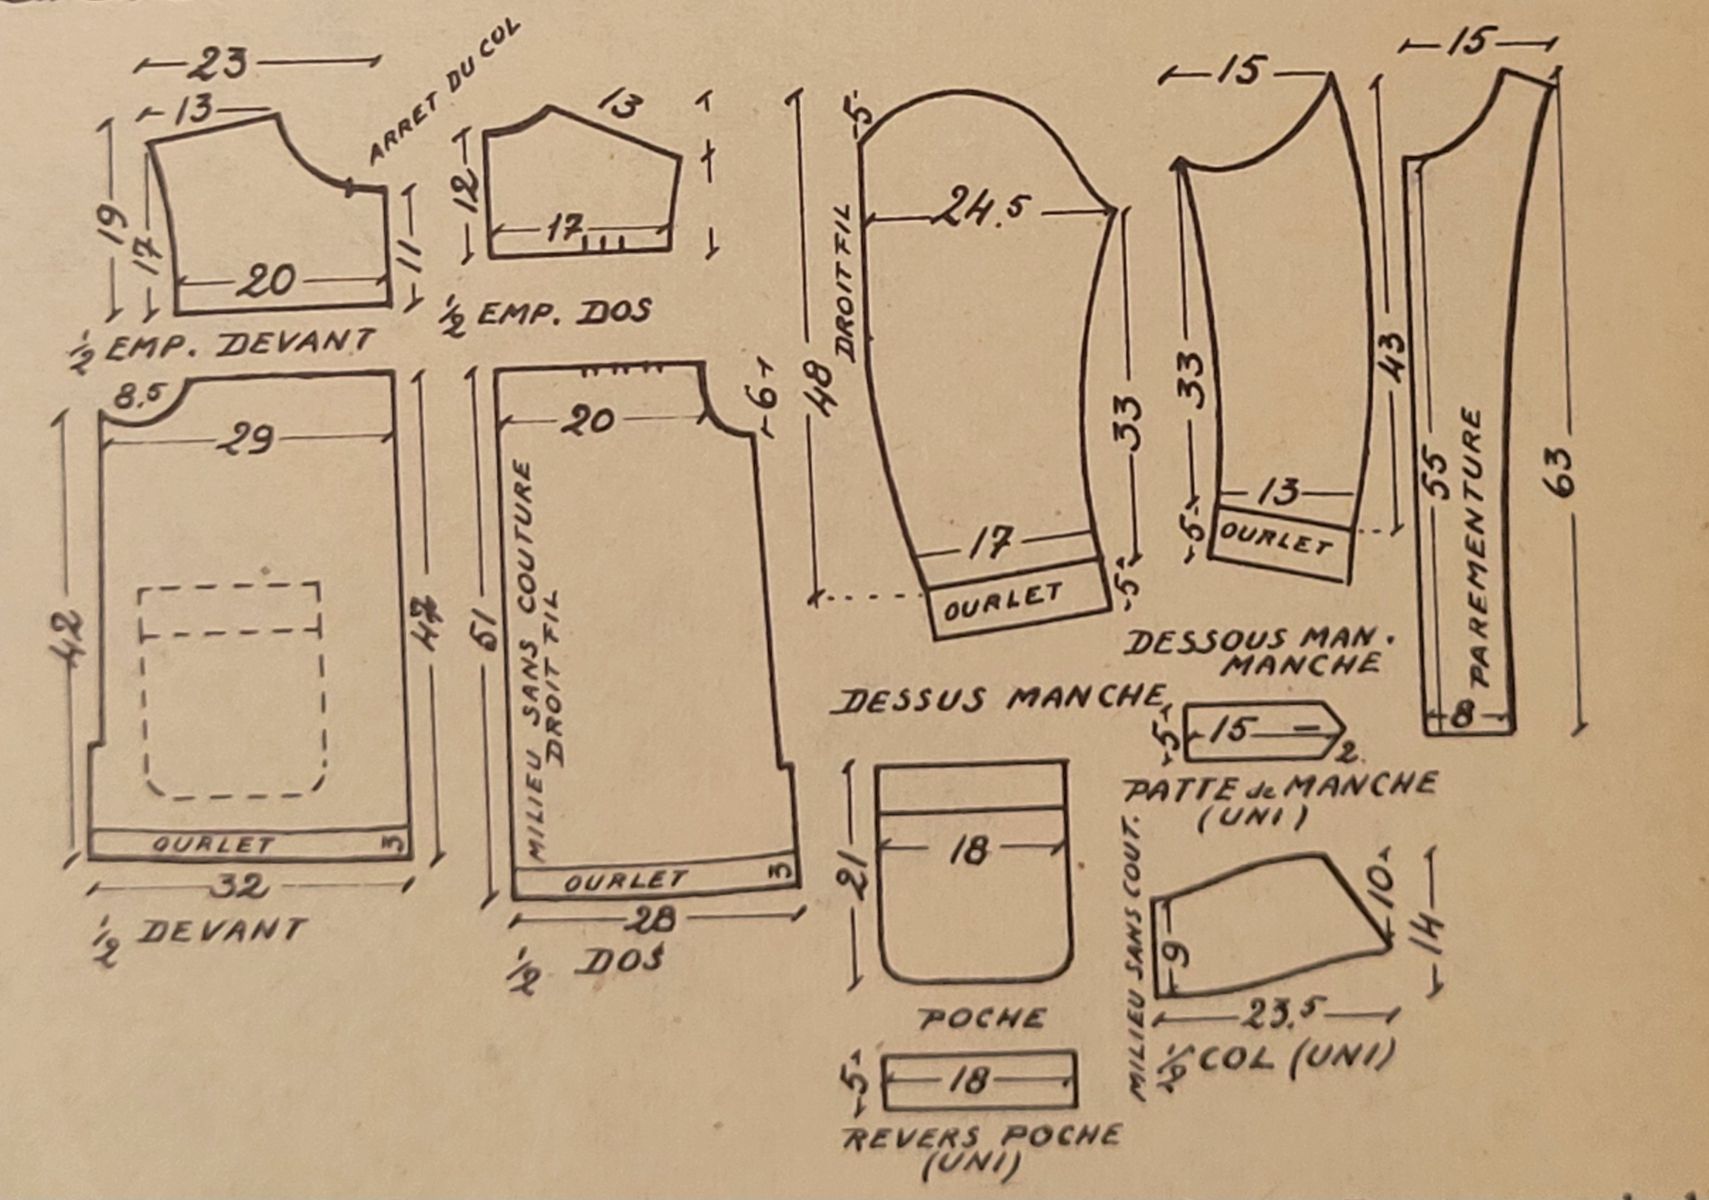 23
13
ARRET DU COL
19
17
20
11
½ EMP. DEVANT
13
12
17
½ EMP. DOS
8.5
29
42
OURLET
3
32
½ DEVANT
6
20
51
MILIEU SANS COUTURE
DROIT FIL
OURLET
3
28
½ DOS
5
48
DROIT FIL
24.5
33
17
5
OURLET
DESSUS MANCHE
15
33
43
13
5
OURLET
DESSOUS MAN.
MANCHE
15
55
PAREMENTURE
63
8
5
15
2
PATTE de MANCHE
(UNI)
21
18
POCHE
5
18
REVERS POCHE
(UNI)
MILIEU SANS COUT.
9
10
14
23.5
½ COL (UNI)